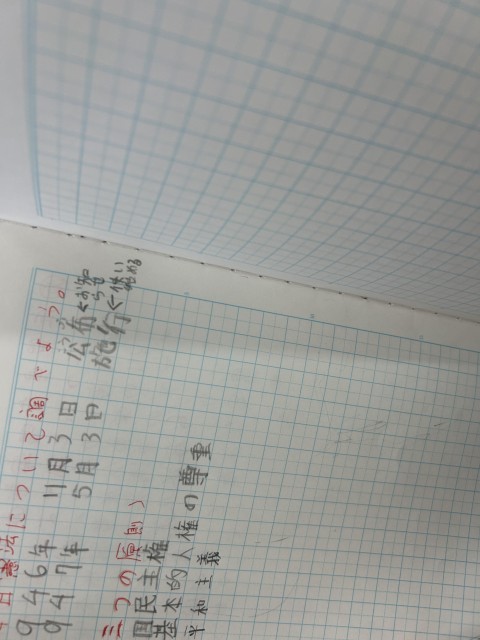 憲法について調べよう。
946年11月3日 公布←お知らせ
947年5月3日 施行←使い始める
三つの原則
国民主権
基本的人権の尊重
平和主義